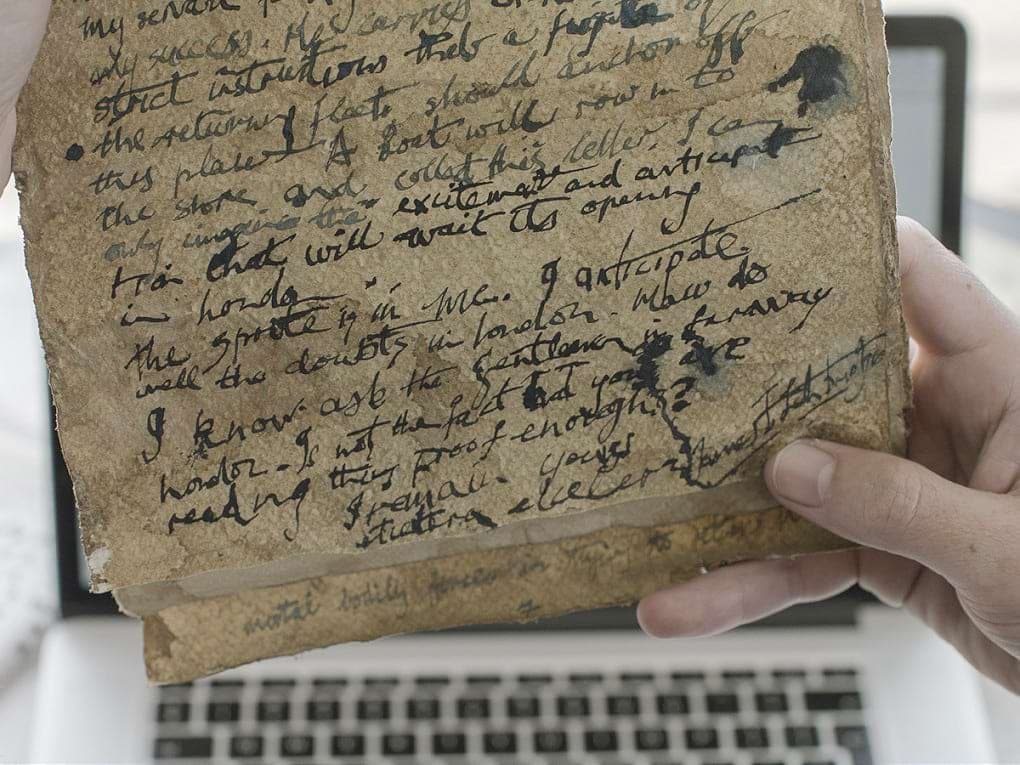 my servant
my success. He carries
strict instructions that a frigate of
the returning fleet should anchor off
this place. A boat will row in to
the shore and collect this letter. I can
only imagine the excitement and anticipa
tion that will wait its opening
in London
the sprite is in me. I anticipate
well the doubts in London. How do
I know ask the gentlemen in faraway
London - Is not the fact that you are
reading this proof enough?
I remain yours
etcetera etcetera
mortal bodily